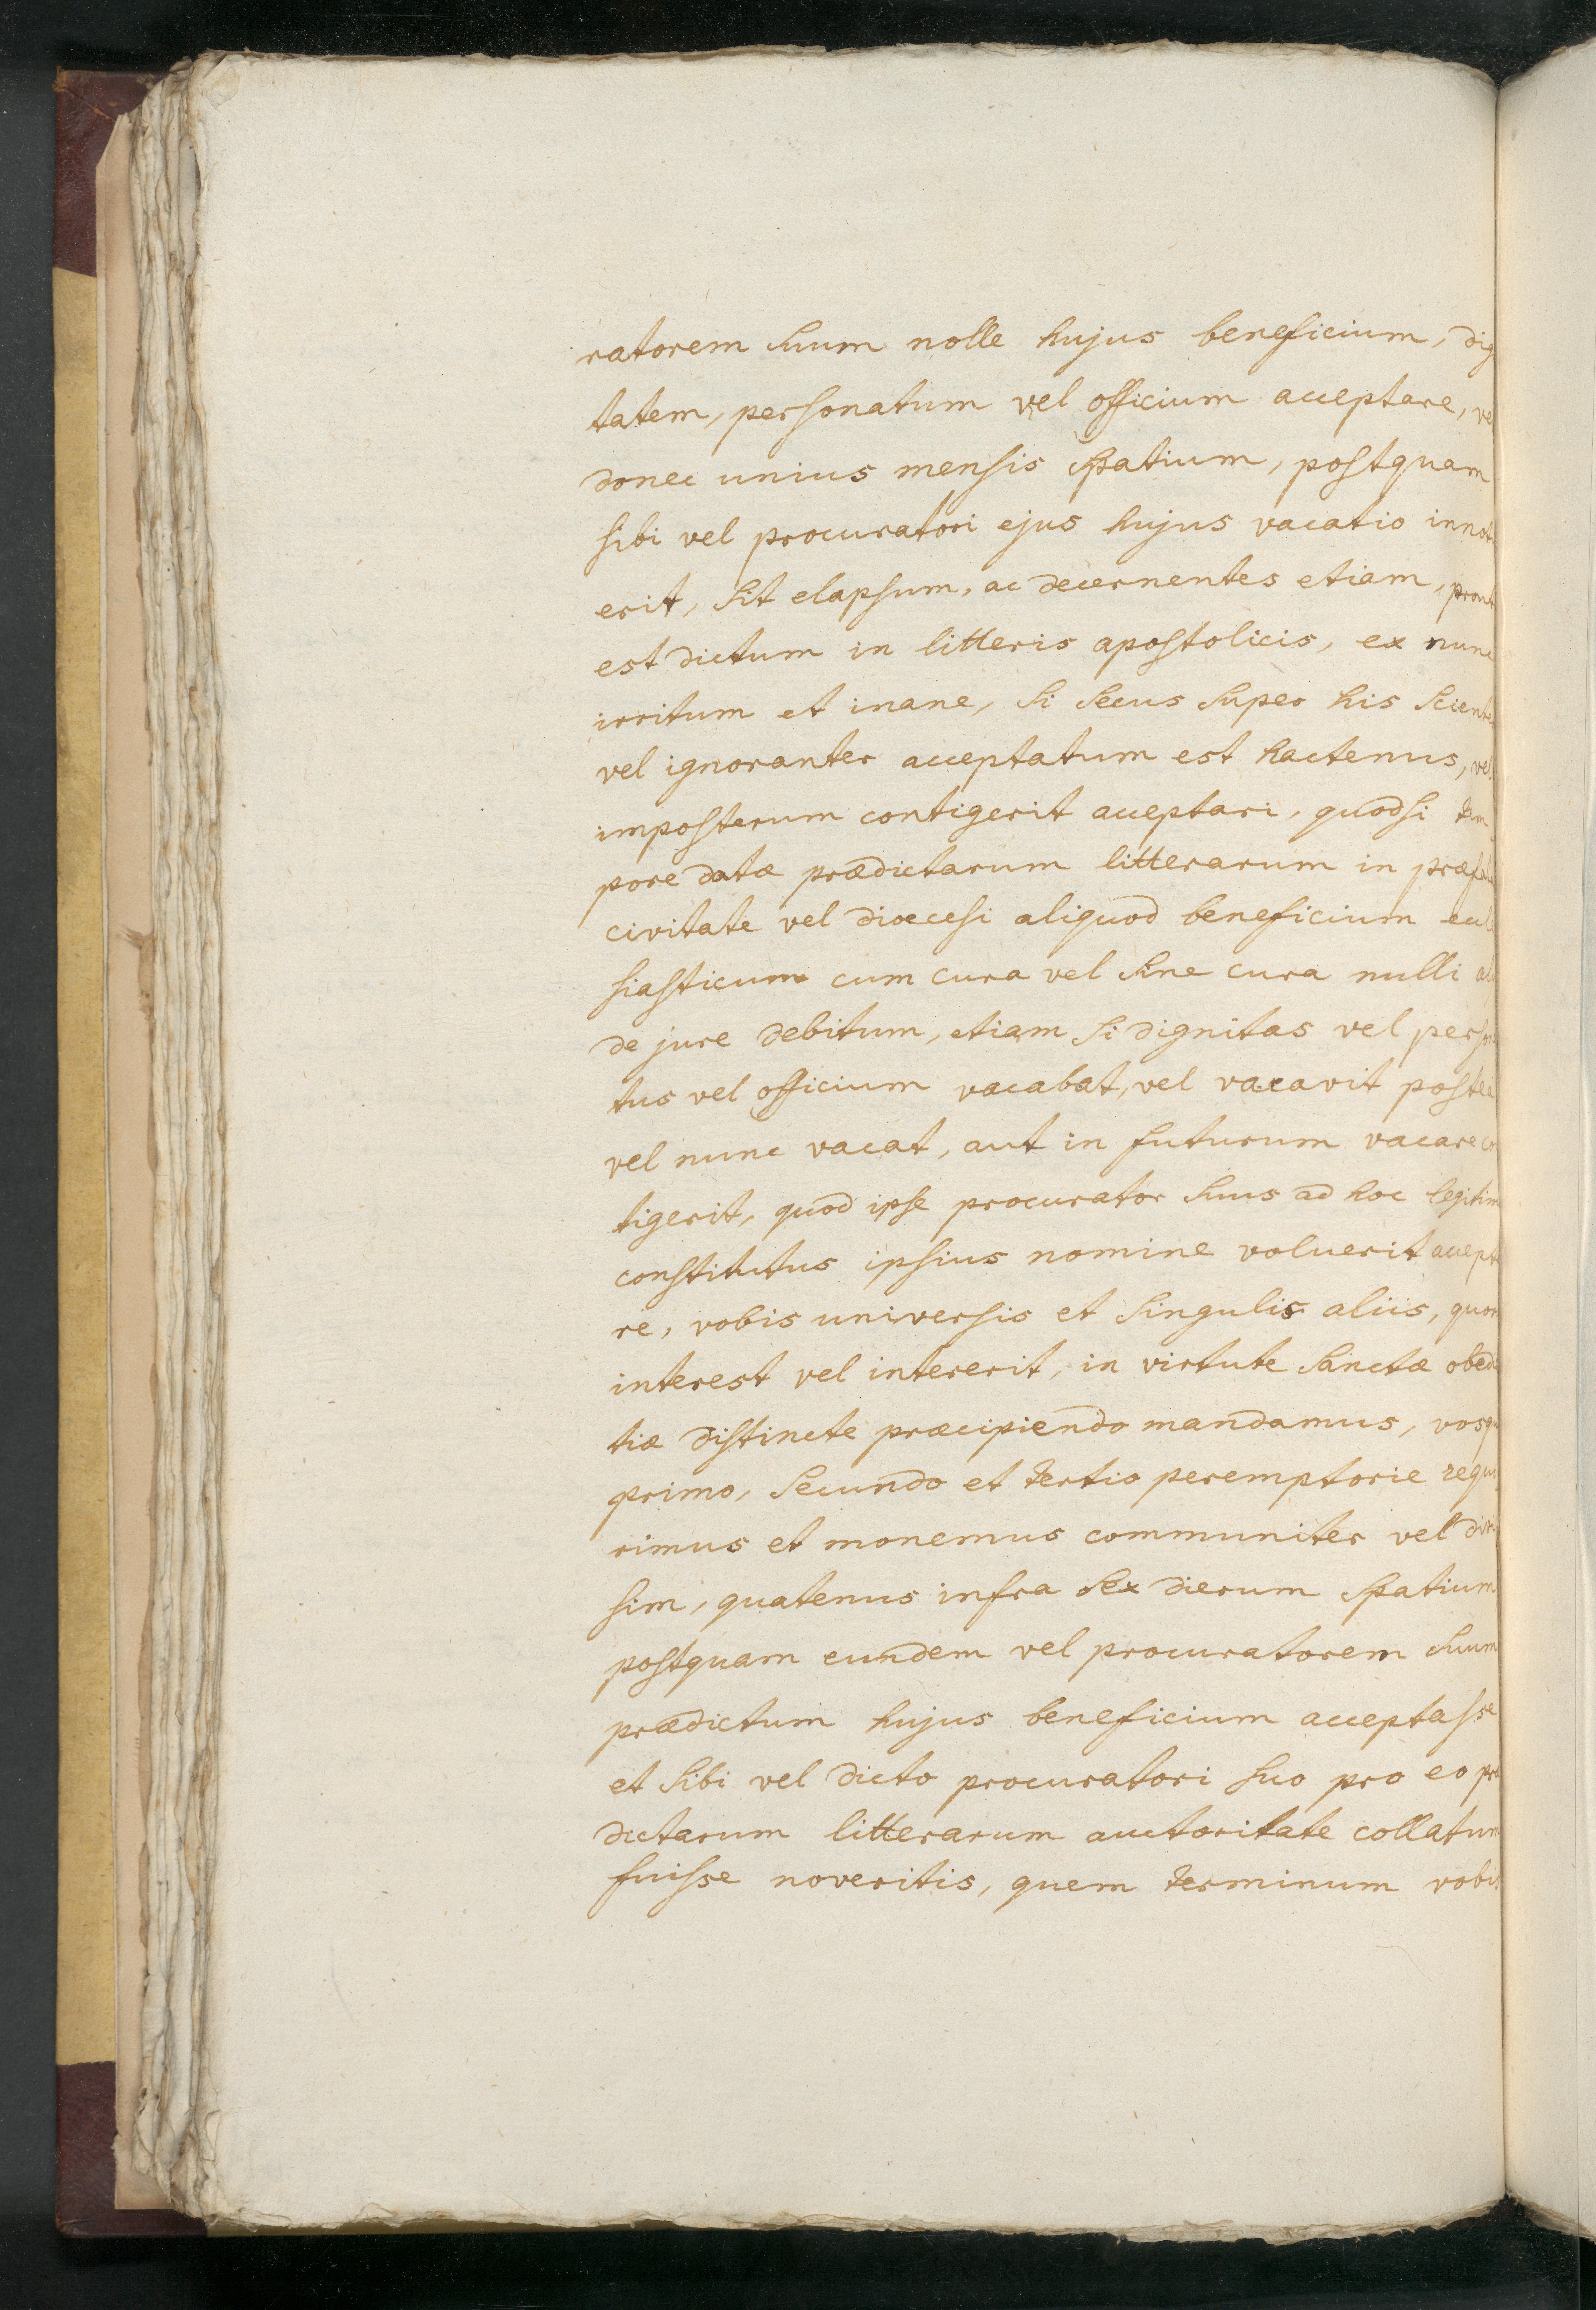 ratorem suum nolle hujus beneficium, dig
tatem, personatum vel officium acceptare, ve
donec unius mensis spatium, postquam
sibi vel procuratori ejus hujus vacatio innot
erit, sit elapsum, ac decernentes etiam, prout
est dictum in litteris apostolicis, ex nunc
irritum et inane, si secus super his scient
vel ignoranter acceptatum est hactenus, vel
imposterum contigerit acceptari, quodsi tem
pore datæ prædictarum litterarum in præfat
civitate vel dioecesi aliquod beneficium eccl
siasticum cum cura vel sine cura nulli al
de jure debitum, etiam si dignitas vel person
tus vel officium vacabat, vel vacavit postea
vel nunc vacat, aut in futurum vacare co
tigerit, quod ipse procurator suus ad hoc legitim
constitutus ipsius nomine voluerit accept
re, vobis universis et singulis aliis, quor
interest vel intererit, in virtute sanctæ obedi
tiæ distincte præcipiendo mandamus, vosqu
primo, secundo et tertio peremptorie requi
rimus et monemus communiter vel divi
sim, quatenus infra sex dierum spatium
postquam eundem vel procuratorem suum
prædictum hujus beneficium acceptasse
et sibi vel dicto procuratori suo pro eo præ
dictarum litterarum auctoritate collatum
fuisse noveritis, quem terminum vobis